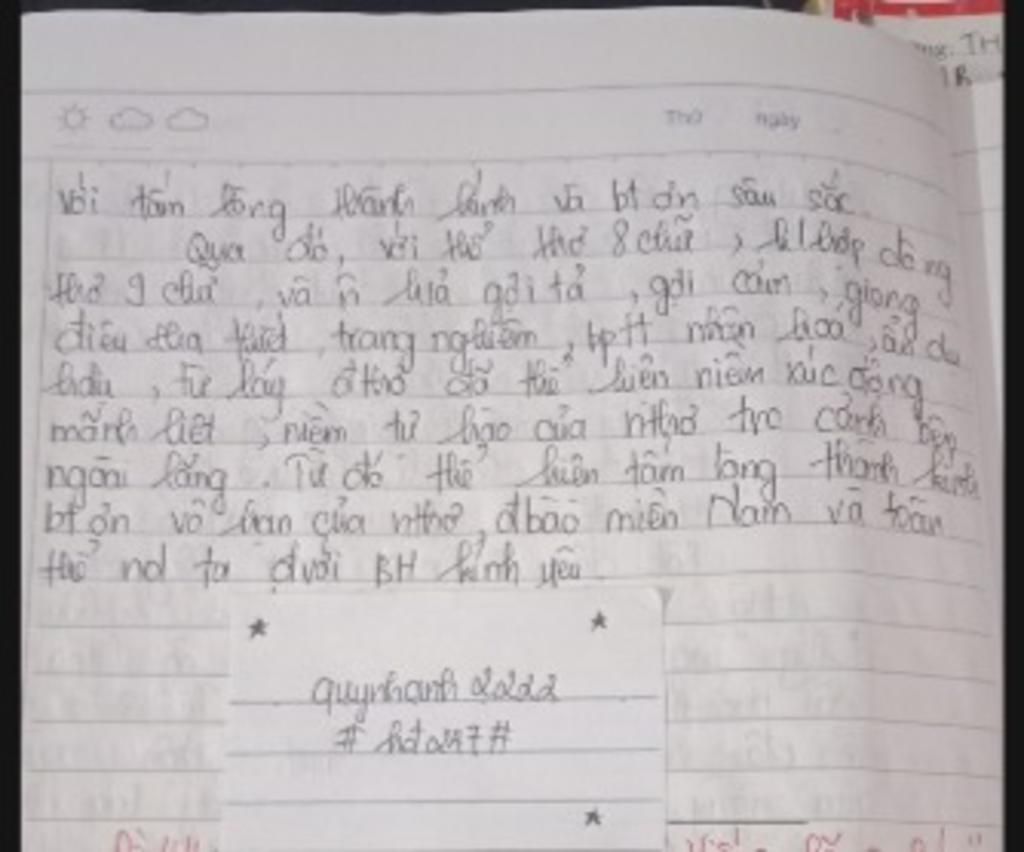 ng. TH
1B
Thứ ngày
với tấm lòng thành kính và bt ơn sâu sắc
Qua đó, với thể thơ 8 chữ, kl hợp dòng
thơ 9 chữ, và n h/ả gợi tả, gợi cảm, giọng
điệu tha thiết, trang nghiêm, bptt nhân hoá, ẩn dụ
từ láy đ thơ đã thể hiện niềm xúc động
mãnh liệt, niềm tự hào của nthơ trc cảnh bên
ngoài lăng. Từ đó thể hiện tấm lòng thành kính
bt ơn vô hạn của nthơ, đbào miền Nam và toàn
thể nd ta đvới BH kính yêu
quynhanh 2222